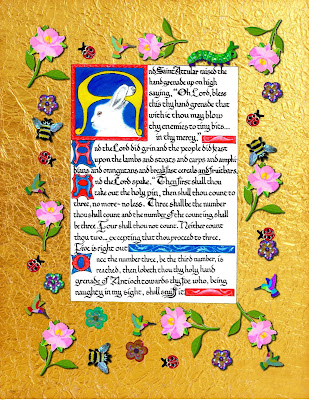 And Saint Attular raised the
hand grenade up on high
saying, "Oh Lord, bless
this thy hand grenade that
with it thou may blow
thy enemies to tiny bits...
in thy mercy."
And the Lord did grin and the people did feast
upon the lambs and sloths and carps and amphi-
bians and orangutans and breakfast cereals and fruitbars.
And the Lord spake, "Then first shall thou
take out the holy pin, then shall thou count to
three, no more - no less. Three shall be the number
thou shall count and the number of the counting shall
be three. Four shall thou not count. Neither count
thou two... excepting that thou proceed to three.
Five is right out.
Once the number three, be the third number, is
reached, then lobeth thou thy holy hand
grenade of Antioch towards thy foe who, being
naughty in my sight, shall snuff it.